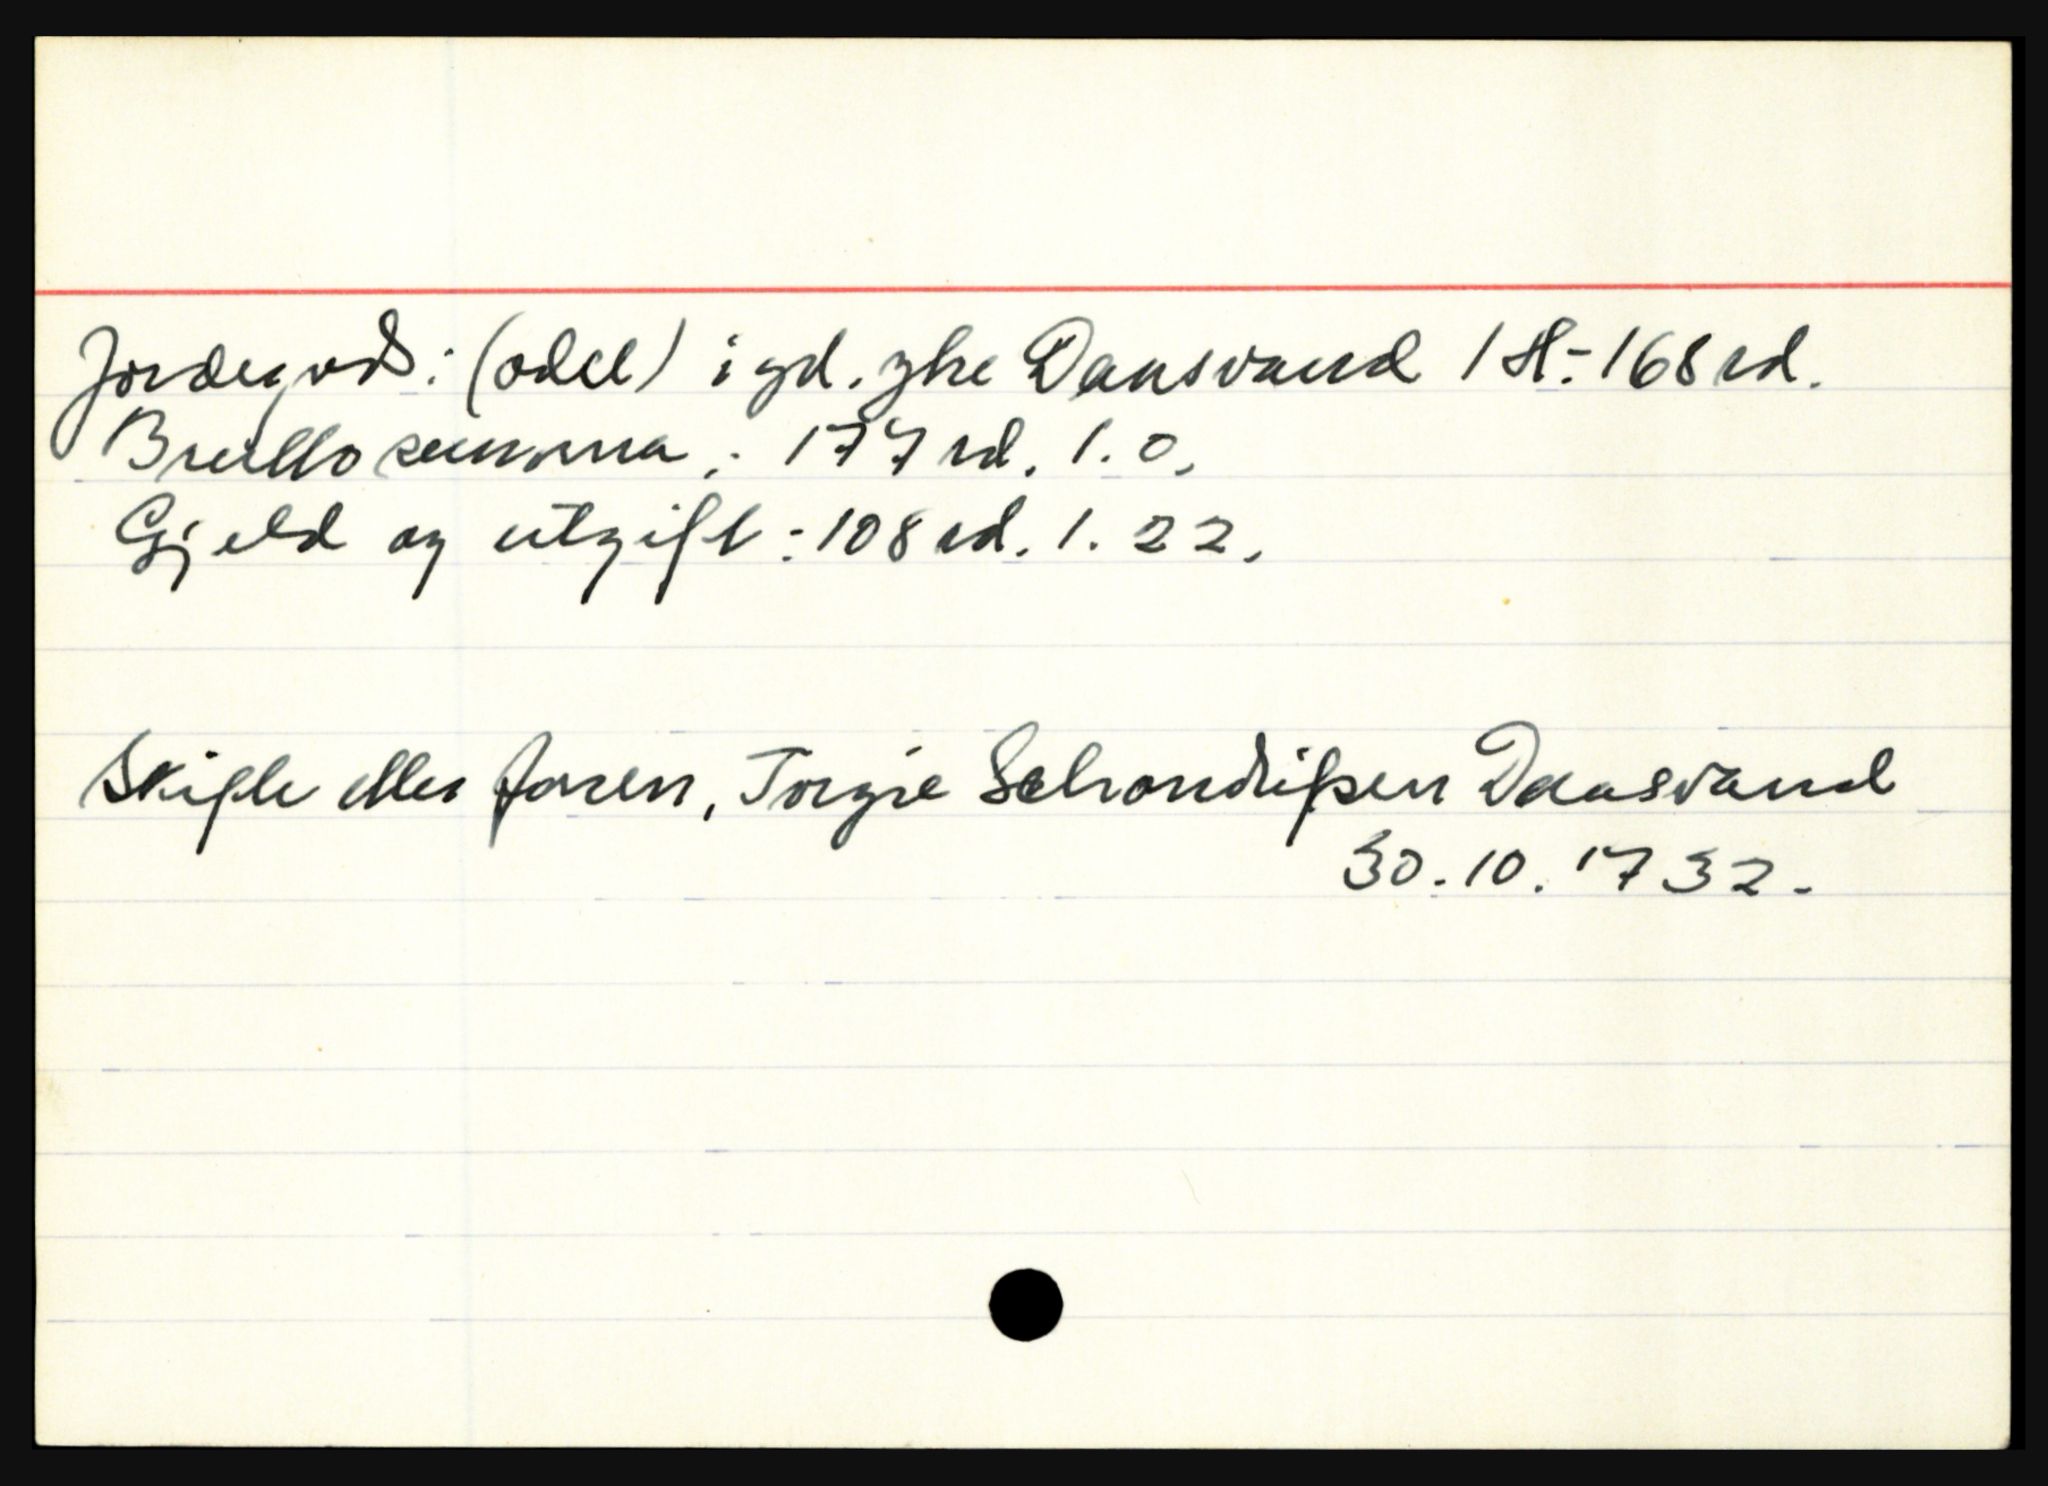 Jordegods: (odel) i gd. yhe Daasvand 1 H:- 168 rd.
Bruttosumma: 177 rd. 1. 0.
Gjeld og utgift: 108 rd. 1. 22.
Skifte efter faren, Torgie Salvandrißen Daasvand
30.10.1732.